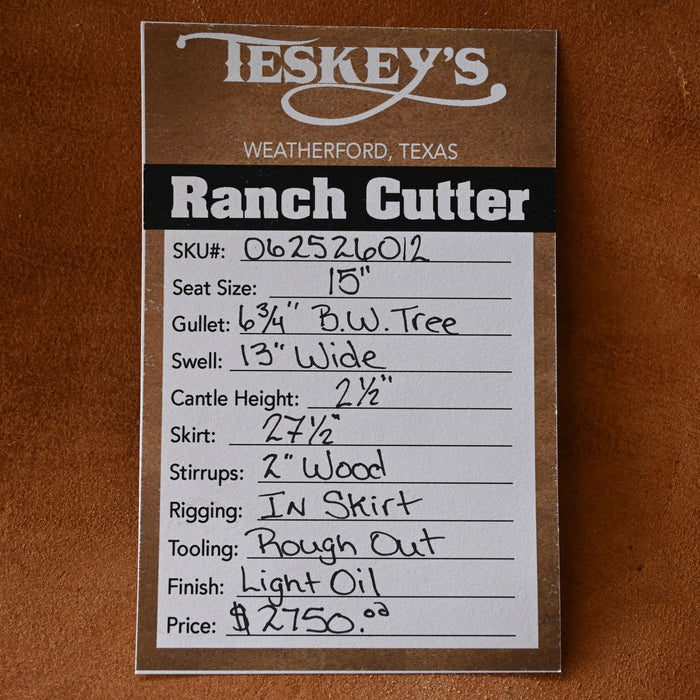 TESKEY'S
WEATHERFORD, TEXAS
Ranch Cutter
SKU#: 062526012
Seat Size: 15"
Gullet: 6 3/4" B.W. Tree
Swell: 13" Wide
Cantle Height: 2 1/2"
Skirt: 27 1/2"
Stirrups: 2" Wood
Rigging: IN Skirt
Tooling: Rough Out
Finish: Light Oil
Price: $2750.00